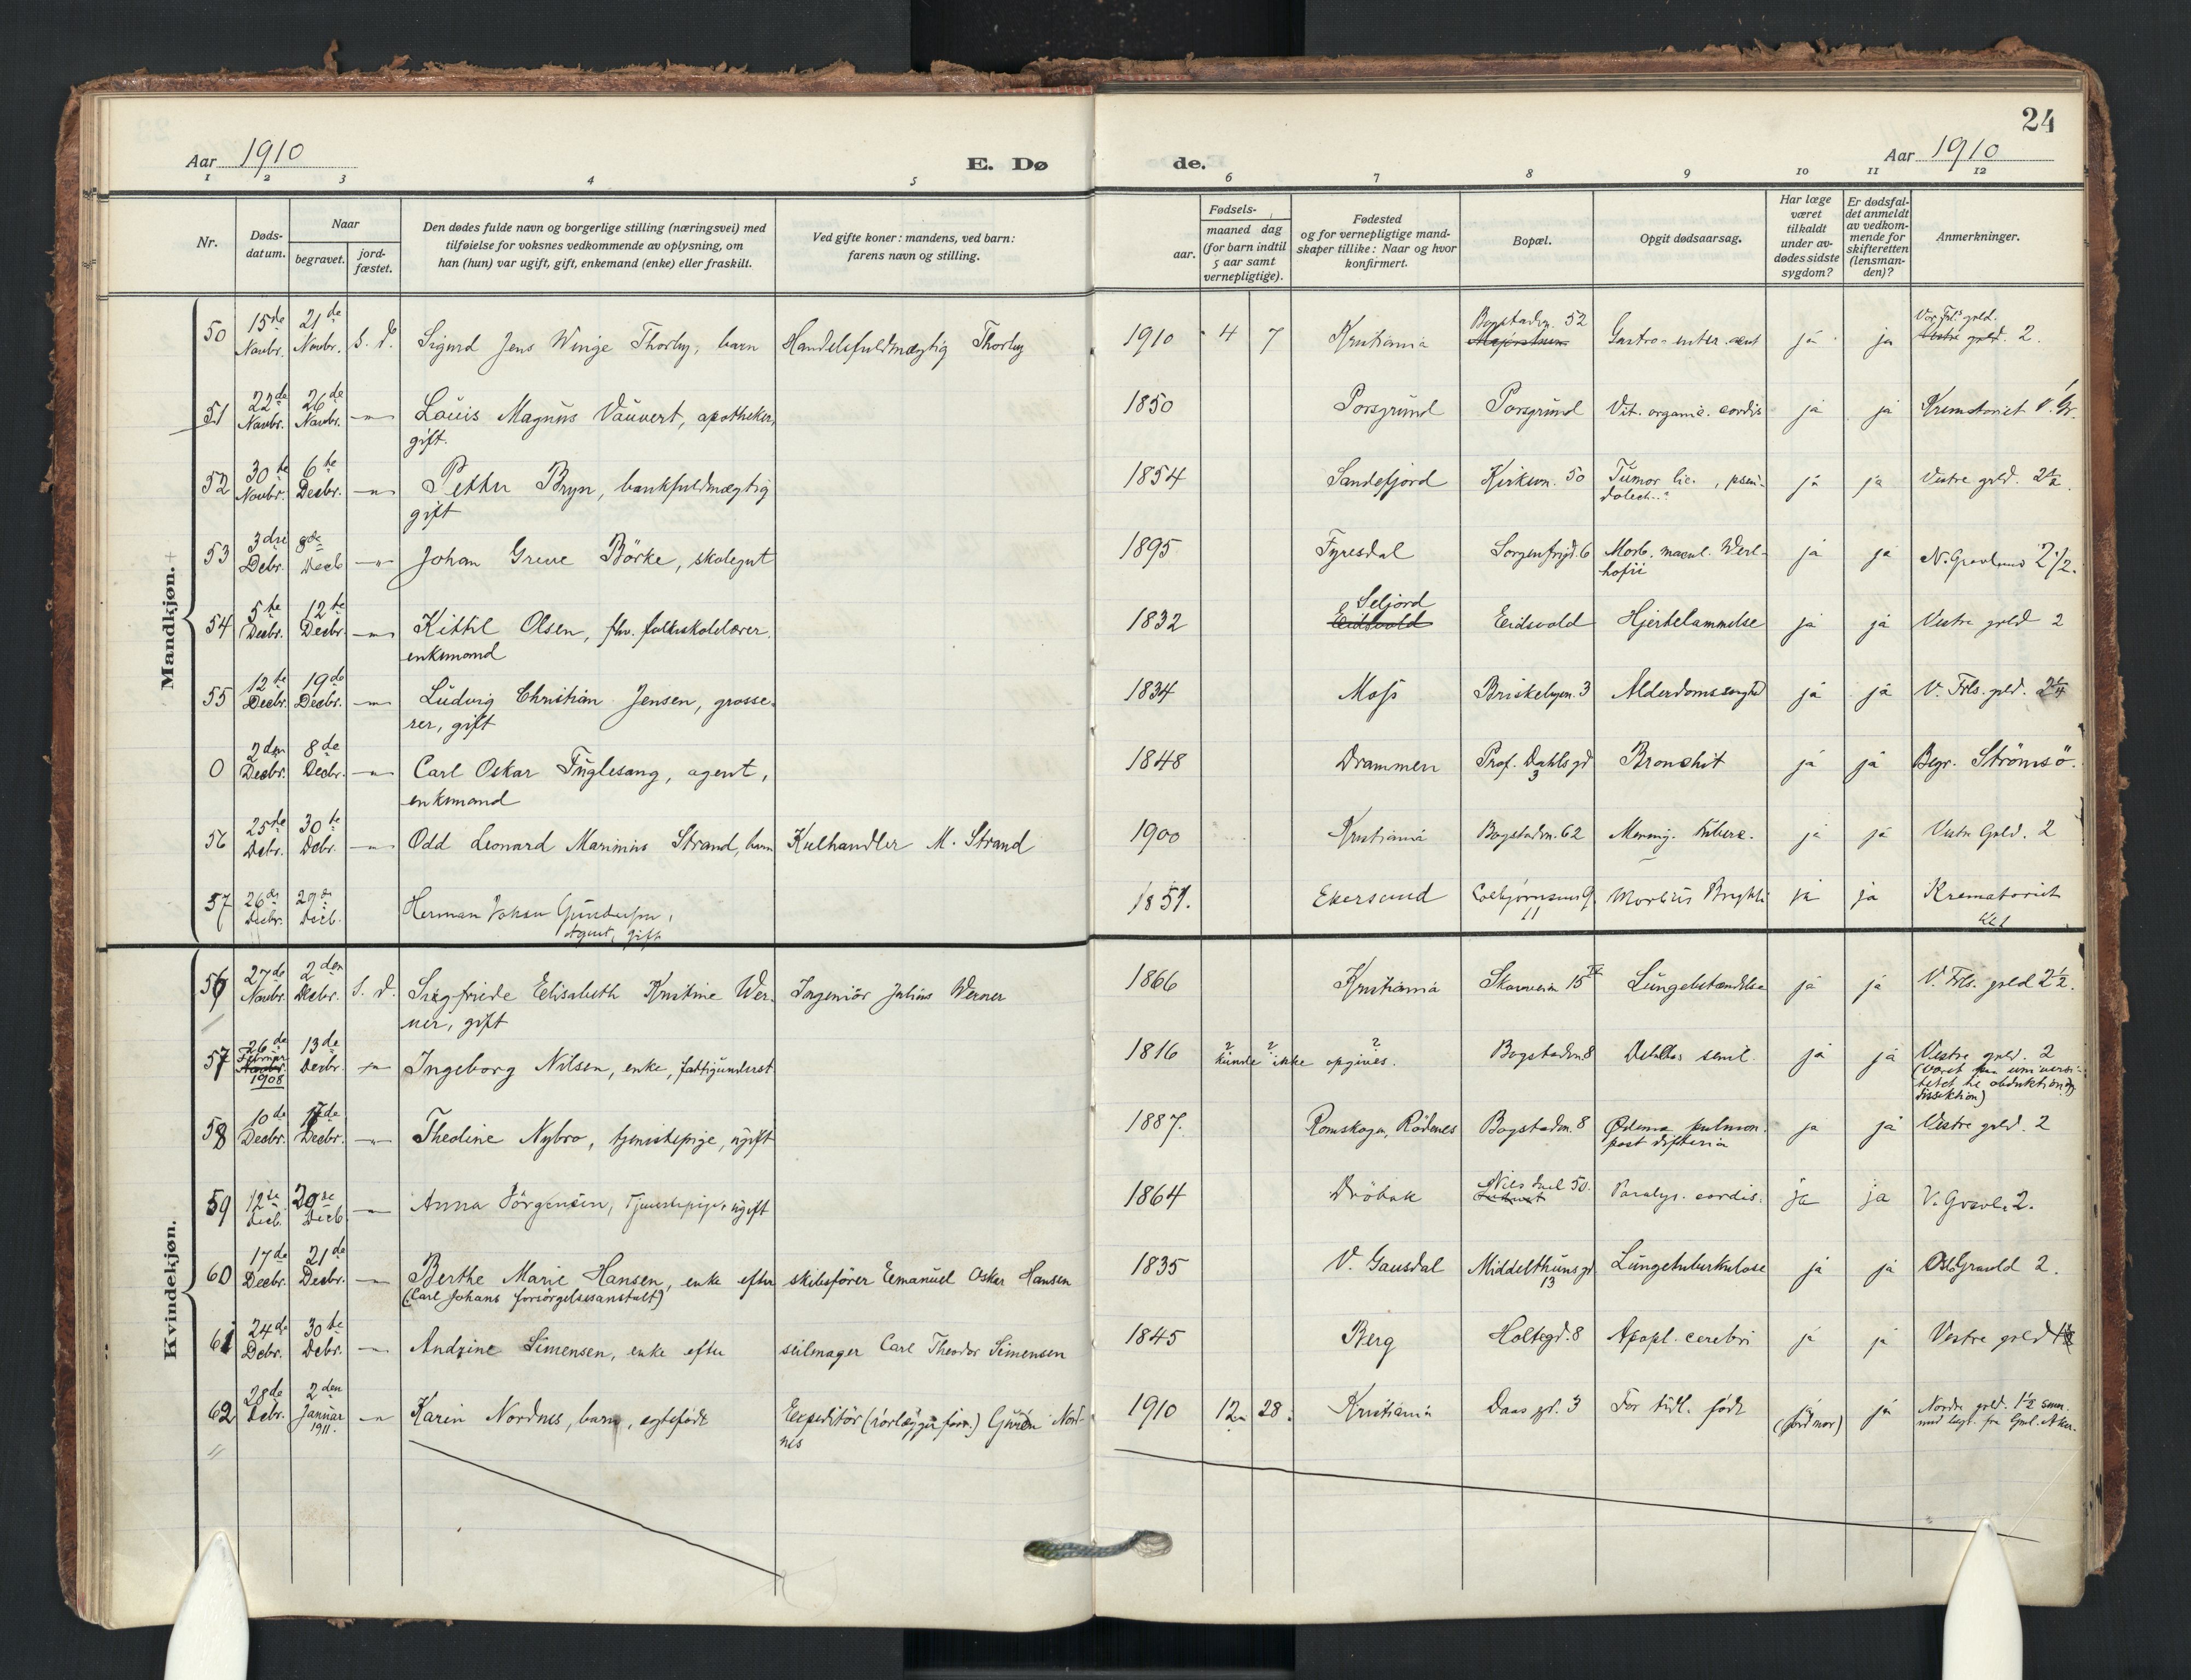 24
Aar 1910
E. Dø
de.
Aar 1910
1 2 3 4 5 6 7 8 9 10 11 12
Nr.
Døds-
datum.
Naar
begravet.
jord-
fæstet.
Den dødes fulde navn og borgerlige stilling (næringsvei) med
tilføielse for voksnes vedkommende av oplysning, om
han (hun) var ugift, gift, enkemand (enke) eller fraskilt.
Ved gifte koner: mandens, ved barn:
farens navn og stilling.
Fødsels-
aar.
maaned dag
(for barn indtil
5 aar samt
vernepligtige).
Fødested
og for vernepligtige mand-
skaper tillike: Naar og hvor
konfirmert.
Bopæl.
Opgit dødsaarsag.
Har læge
været
tilkaldt
under av-
dødes sidste
sygdom?
Er dødsfal-
det anmeldt
av vedkom-
mende for
skifteretten
(lensman-
den)?
Anmerkninger.
Mandkjøn.
50 15de Novbr. 21de Novbr. s. d. Sigurd Jens Winge Thorby, barn Handelsfuldmægtig Thorby 1910 4 7 Kristiania Bogstadvn. 52 Gastro-enter. acut ja ja Vor Frls. grld. 2.
51 22de Novbr. 26de Novbr. -"- Louis Magnus Vauvert, apotheker, 1850 Porsgrund Porsgrund Vit. organic. cordis ja ja Krematoriet V. Gr.
gift.
52 30te Novbr. 6te Decbr. -"- Petter Bryn, bankfuldmægtig 1854 Sandefjord Kirkevn. 50 Tumor ja ja Vestre grld. 2½.
gift
53 3die Debr. 8de Decb -"- Johan Greve Börke, skolegut 1895 Fyresdal Sorgenfrigd. 6 Morb. macul. Werl- ja ja N. Gravlund 2½.
hofii
54 5te Decbr. 12te Decbr. -"- Kittil Olsen, fhv. folkeskolelærer. 1832 Seljord Eidsvold Eidsvold Hjertelammelse ja ja Vestre grld 2
enkemand
55 12te Decbr. 19de Decbr. -"- Ludvig Christian Jensen, grosse- 1834 Moss Briskebyvn. 3 Alderdomssvaghed ja ja V. Frls. grld.
rer, gift
0 2den Decbr. 8de Decbr. -"- Carl Oskar Fuglesang, agent, 1848 Drammen Prof. Dahlsgd 3 Bronchit ja ja Begr. Strömsö.
enkemand
56 25de Debr. 30te Debr. -"- Odd Leonard Marinius Strand, barn Kulhandler M. Strand 1900 Kristiania Bogstadvn. 62 Mening. tuberc. ja ja Vestre Grld. 2
57 26de Decbr. 29de Decb. Herman Johan Gundersen, 1851. Ekersund Colbjørnsens g. 11 Morbus Brightii ja ja Krematoriet
Agent, gift
Kvindekjøn.
56 27de Novbr. 2den Decbr. s. d. Siegfriede Elisabeth Kristine Wer- Ingeniör Julius Werner 1866 Kristiania 15 IV Lungebetændelse ja ja V. Frls. grld 2½.
ner, gift
57 26de Februar 1908 13de Decbr. -"- Ingeborg Nilsen, enke, fattigunderst. 1816 ? ? ? kunde ikke opgives. Bogstadvn. 8 senil. ja ja Vestre grld. 2
(været universi-
tetet til obduktion og
dissektion)
58 10de Decbr. 17de Decbr. -"- Theoline Nybro, tjenestepige, ugift 1887. Romskogn, Rödenes Bogstadvn. 8 Ødema pulmon. ja ja Vestre grld. 2
post difteria
59 12te Decb. 20de Decb -"- Anna Jörgensen, Tjenestepige, ugift 1864 Dröbak Niels Juel 50. Paralys. cordis. ja ja V. Gravl. 2.
60 17de Decbr. 21de Decbr. -"- Berthe Marie Hansen, enke efter skibsfører Emanuel Oskar Hansen 1835 V. Gausdal Middelthunsgd 13 Lungetuberkulose ja ja Oslo Gravld 2.
(Carl Johans forsörgelsesanstalt)
61 24de Debr. 30te Debr. -"- Andrine Simensen, enke efter seilmager Carl Theodor Simensen 1845 Berg Holtegd. 8 Apopl. cerebri ja ja Vestre grld
62 28de Debr. 2den Januar 1911. -"- Karin Nordnes, barn, egtefödt Expeditör (rörlægger form) Nord- 1910 12 28. Kristiania Daas gd. 3 For tidl. födt ja (jordmor) ja Nordre grld. 1½
nes